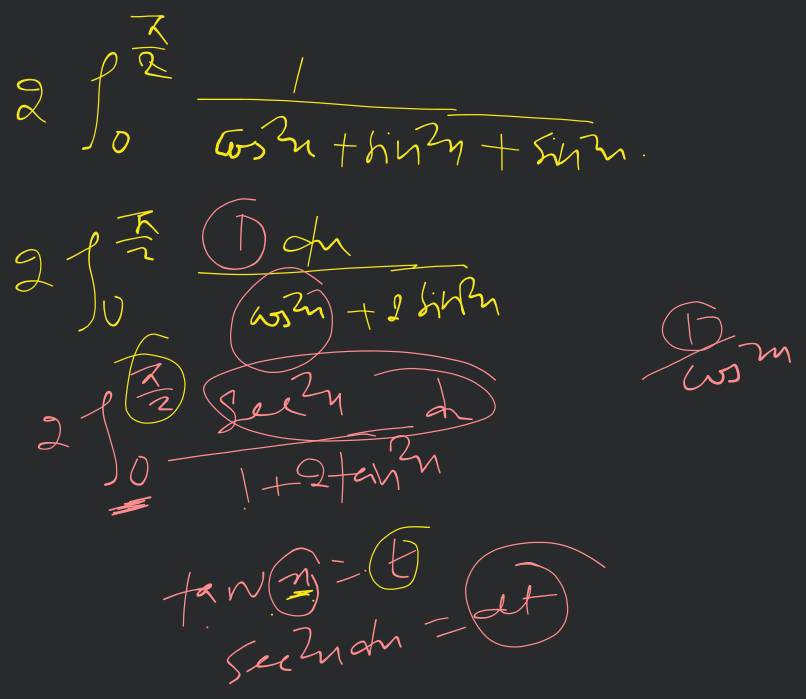 2 ∫₀^(π/2) 1 / (cos²x + sin²x + sin²x) .
2 ∫₀^(π/2) 1 dx / (cos²x + 2 sin²x)
1 / cos²x
2 ∫₀^(π/2) sec²x dx / (1 + 2 tan²x)
tan x = t
sec²x dx = dt